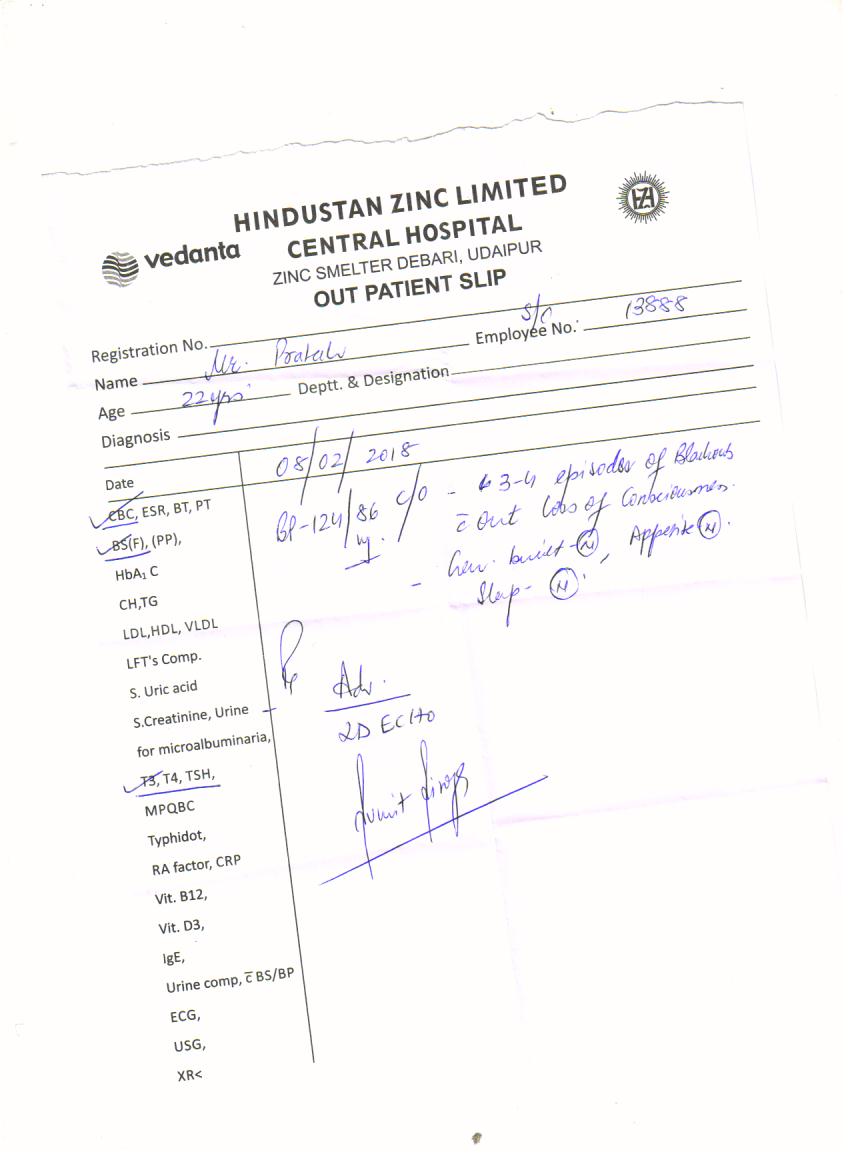 HINDUSTAN ZINC LIMITED
vedanta
CENTRAL HOSPITAL
ZINC SMELTER DEBARI, UDAIPUR
OUT PATIENT SLIP
Registration No.
S/O
Employee No. 13888
Name Mr.
Age 22 yrs
Deptt. & Designation
Diagnosis
Date 08/02/2018
CBC, ESR, BT, PT
BP-124/86 C/O - 3-4 episodes of Blackouts
c̄out loss of Consciousness.
BS(F), (PP),
- Gen. built - N, Appetite N.
Sleep - N
HbA₁ C
CH,TG
LDL,HDL, VLDL
LFT's Comp.
S. Uric acid
Rx
Adv.
S.Creatinine, Urine
2D ECHO
for microalbuminaria,
T3, T4, TSH,
MPQBC
Typhidot,
RA factor, CRP
Vit. B12,
Vit. D3,
IgE,
Urine comp, c̄ BS/BP
ECG,
USG,
XR<